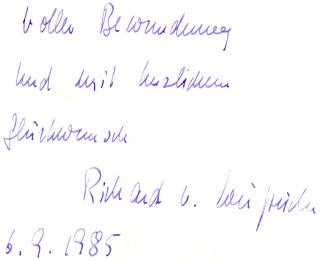 voller Bewunderung
und mit herzlichem
Glückwunsch
Richard v.
6.9.1985